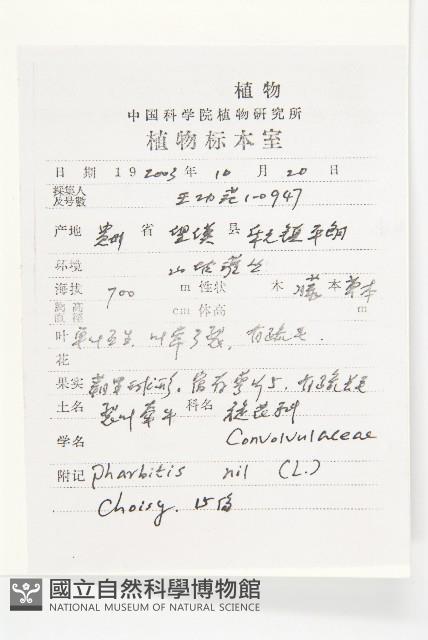 植物
中国科学院植物研究所
植物标本室
日 期 19 2003 年 10 月 20 日
採集人
及号數 1-0947
产地 贵州 省 望谟 县 平朗
环境 山坡灌丛
海拔 700 m 性状 木 藤 本 草本
胸高
直径 cm 体高 m
叶 单叶互生
花
果实 蒴果球形, 宿存萼片5, 有疏长毛
土名 裂叶牵牛 科名 旋花科
学名 Convolvulaceae
附记 Pharbitis nil (L.)
Choisy. 15份
國立自然科學博物館
NATIONAL MUSEUM OF NATURAL SCIENCE